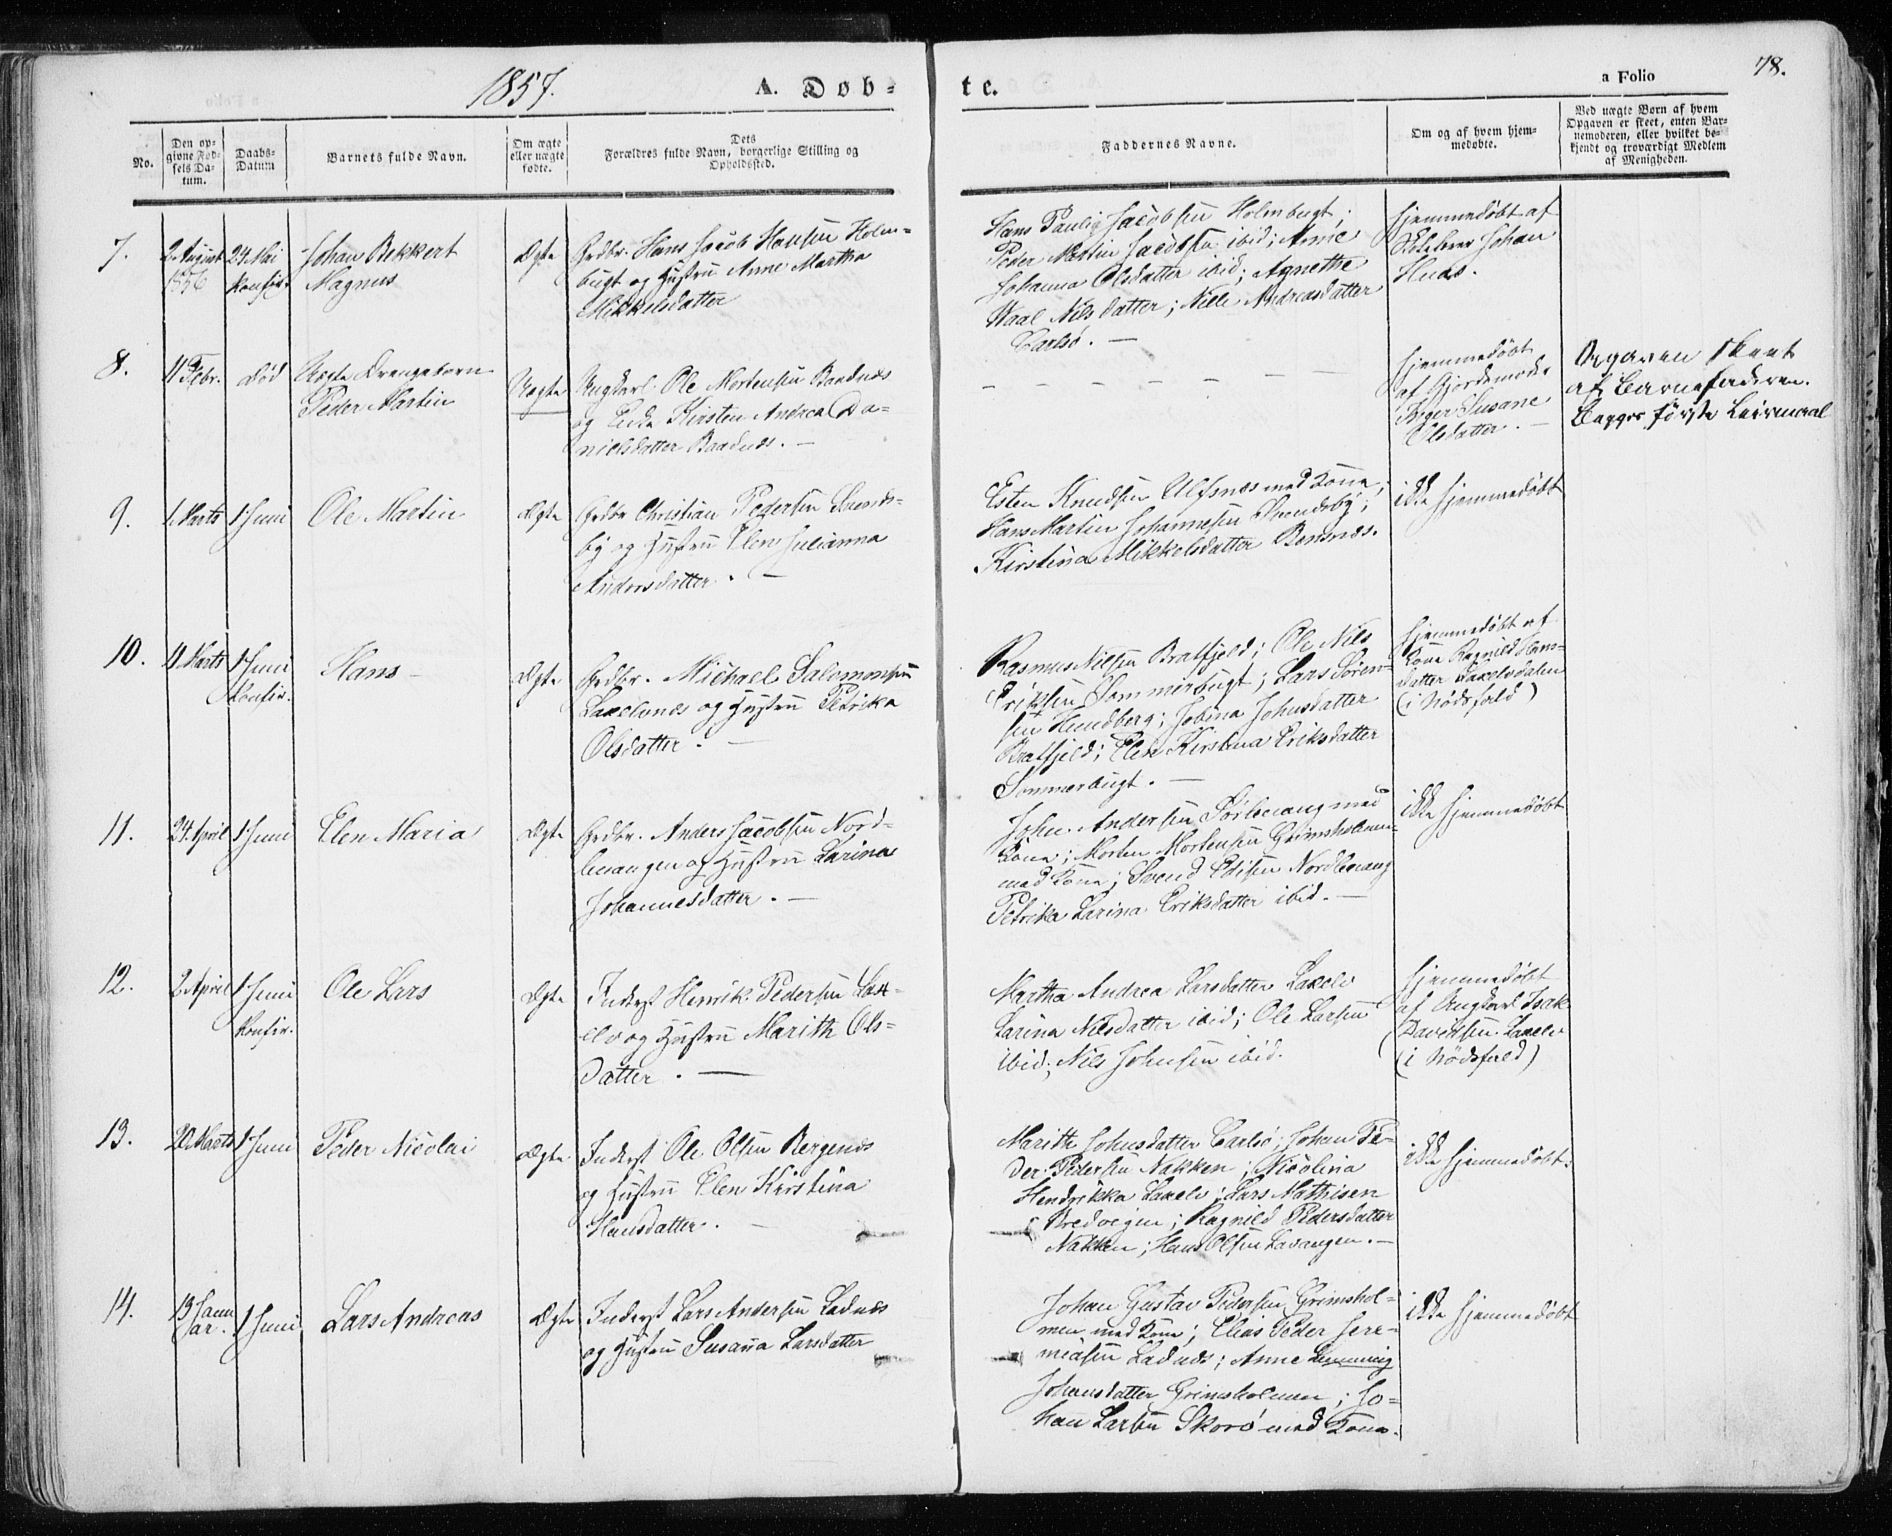 1857.
A. Døb-
te.
a Folio
78.
No.
Den op-
givne Fød-
sels Da-
tum.
Daabs-
Datum
Barnets fulde Navn.
Om ægte
eller uægte
fødte.
Dets
Forældres fulde Navn, borgerlige Stilling og
Opholdssted.
Faddernes Navne.
Om og af hvem hjem-
medøbte.
Ved uægte Børn af hvem
Opgaven er skeet, enten Bar-
nemoderen, eller hvilket be-
kjendt og troværdigt Medlem
af Menigheden.
7.
2 August
1856
24 Mai
Konfir.
Johan Bekkert
Magnus
Ægte
Grdbr. Hans Jacob Hansen Holm-
bugt og Hustru Anne Martha
Mikkelsdatter
Hans Paulig Jacobsen Holmbugt;
Peder Martin Jacobsen ibid; Anne
Johanna Olsdatter ibid; Agnethe
Waal Nilsdatter; Nille Andreasdatter
Carlsø. —
Hjemmedøbt af
Skolelærer Johan
8.
4 Febr.
død
Uægte Drengebarn
Peder Martin
Uægte
Ungkarl Ole Mortensen Baadnæs
og Enke Kirsten Andrea Da-
nielsdatter Baadnæs. —
Hjemmedøbt
af Gjordemoder
Inger Susane
Olsdatter. —
Opgaven skeet
af Barnefaderen.
Begges første Leiermaal
9.
1 Marts
1 Juni
Ole Martin
Ægte
Grdbr Christian Pedersen Svends-
by og Hustru Elen Julianna
Andersdatter. —
Esten Knudsen Ulfsnæs med Kone;
Hans Martin Johannesen Svendsby;
Kirstina Mikkelsdatter Bensnæs.
ikke hjemmedøbt
10.
4 Marts
1 Juni
Konfir.
Hans —
Ægte
Grdbr. Michael Salomonsen
Laxelvnæs og Hustru Petrika
Olsdatter. —
Rasmus Nilsen Bratfjeld; Ole Nils
Eriksen Sommerbugt; Lars Søren-
sen Hundberg; Jobina Johnsdatter
Bratfjeld; Elen Kirstina Eriksdatter
Sommerbugt. —
Hjemmedøbt af
Kone Ragnild Hans-
datter Laxelvdalen
(i Nødsfald)
11.
24 April
1 Juni
Elen Maria
Ægte
Grdbr. Anders Jacobsen Nord-
lenangen og Hustru Larina
Johannesdatter. —
John Andersen Sørlenang med
Kone; Morten Mortensen Grimsholmen
med Kone; Svend Edisen Nordlenang
Petrika Larina Eriksdatter ibid. —
ikke hjemmedøbt
12.
2 April
1 Juni
Konfir.
Ole Lars
Ægte
Inderst Henrik Pedersen Lax-
elv og Hustru Marith Ols-
datter. —
Martha Andrea Larsdatter Laxelv
Larina Nilsdatter ibid; Ole Larsen
ibid; Nils Johnsen ibid.
Hjemmedøbt
af Ungkarl Isak
Davidsen Laxelv
(i Nødsfald)
13.
20 Marts
1 Juni
Peder Nicolai
Ægte
Inderst Ole Olsen Bergenæs
og Hustru Elen Kirstina
Hansdatter. —
Marith Johnsdatter Carlsø; Johan Pe-
der Pedersen Nakken; Nicolina
Hendrikka Laxelv; Lars Mathisen
Bredvigen; Ragnild Pedersdatter
Nakken; Hans Olsen Lavangen. —
ikke hjemmedøbt.
14.
13 Janu
ar.
1 Juni
Lars Andreas
Ægte
Inderst Lars Andersen Ladnæs
og Hustru Susanna Larsdatter
Johan Gustav Pedersen Grimshol-
men med Kone; Elias Peder Jere-
miasen Ladnæs; Anne
Johansdatter Grimsholmen; Jo-
han Larsen Skorø med Kone.
ikke hjemmedøbt